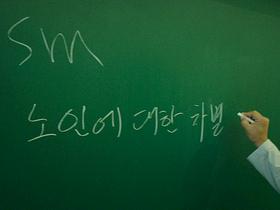 SM
노인에 대한 차별